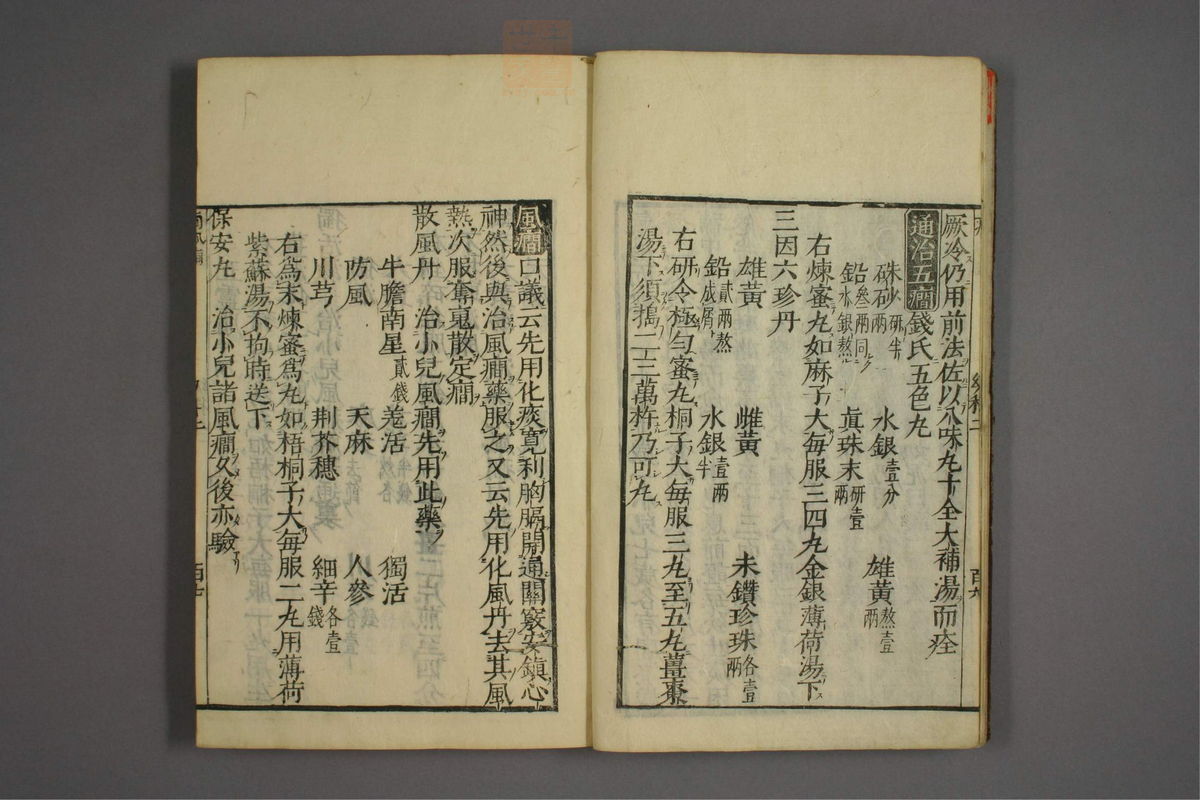 厥冷仍用前法佐以八味丸十全大補湯而痊
通治五癇錢氏五色丸
硃砂研半兩 水銀壹分 雄黃熬壹兩
鉛叁兩同水銀熬 眞珠末研壹兩
右煉蜜丸如麻子大每服三四丸金銀薄荷湯下
三因六珍丹
雄黃 雌黃 未鑽珍珠各壹兩
鉛貳兩熬成屑 水銀壹兩半
右研令極勻蜜丸桐子大每服三丸至五丸薑棗
湯下須搗二三萬杵乃可丸
風癇口議云先用化痰寬利胸膈開通關竅安鎮心
神然後與治風癇藥服之又云先用化風丹去其風
熱次服奪䰟散定癇
散風丹 治小兒風癇先用此藥
牛膽南星貳錢 羗活 獨活
防風 天麻 人參
川芎 荆芥穗 細辛各壹錢
右爲末煉蜜爲丸如梧桐子大每服二丸用薄荷
紫蘇湯不拘時送下
保安丸 治小兒諸風癇久後亦驗